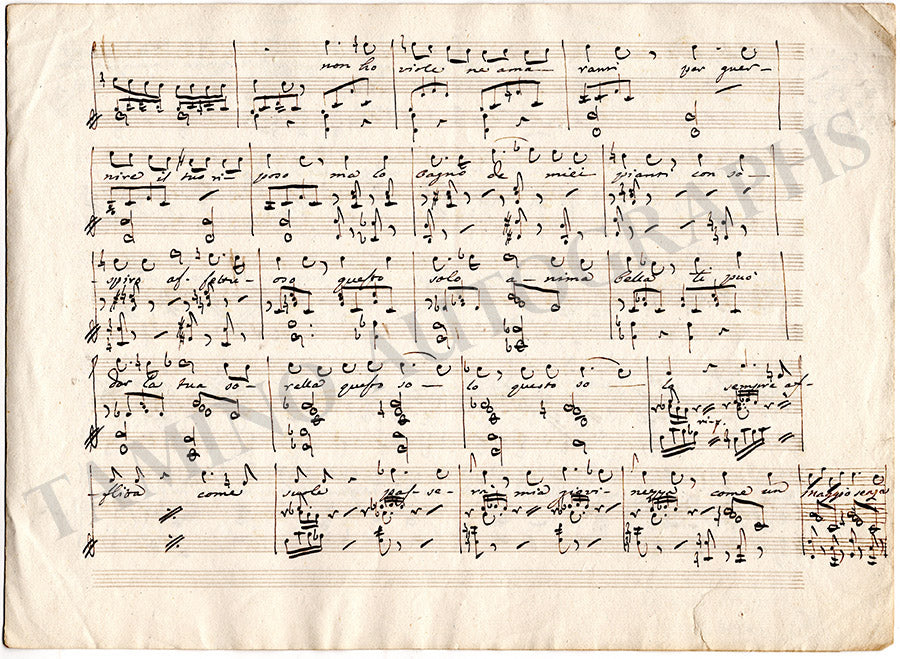 non ho viole ne ama-
ranti per guer-
nire il tuo ri-
poso ma lo bagno de miei pianti con so-
spire af-fettu-
oso questo solo a-nima bella ti può
dar la tua so-
rella questo so-lo questo so-lo sempre af-
flitta come
suole pas-se-rò mia giovi-
nezza come un Maggio senza
TAMINO AUTOGRAPHS